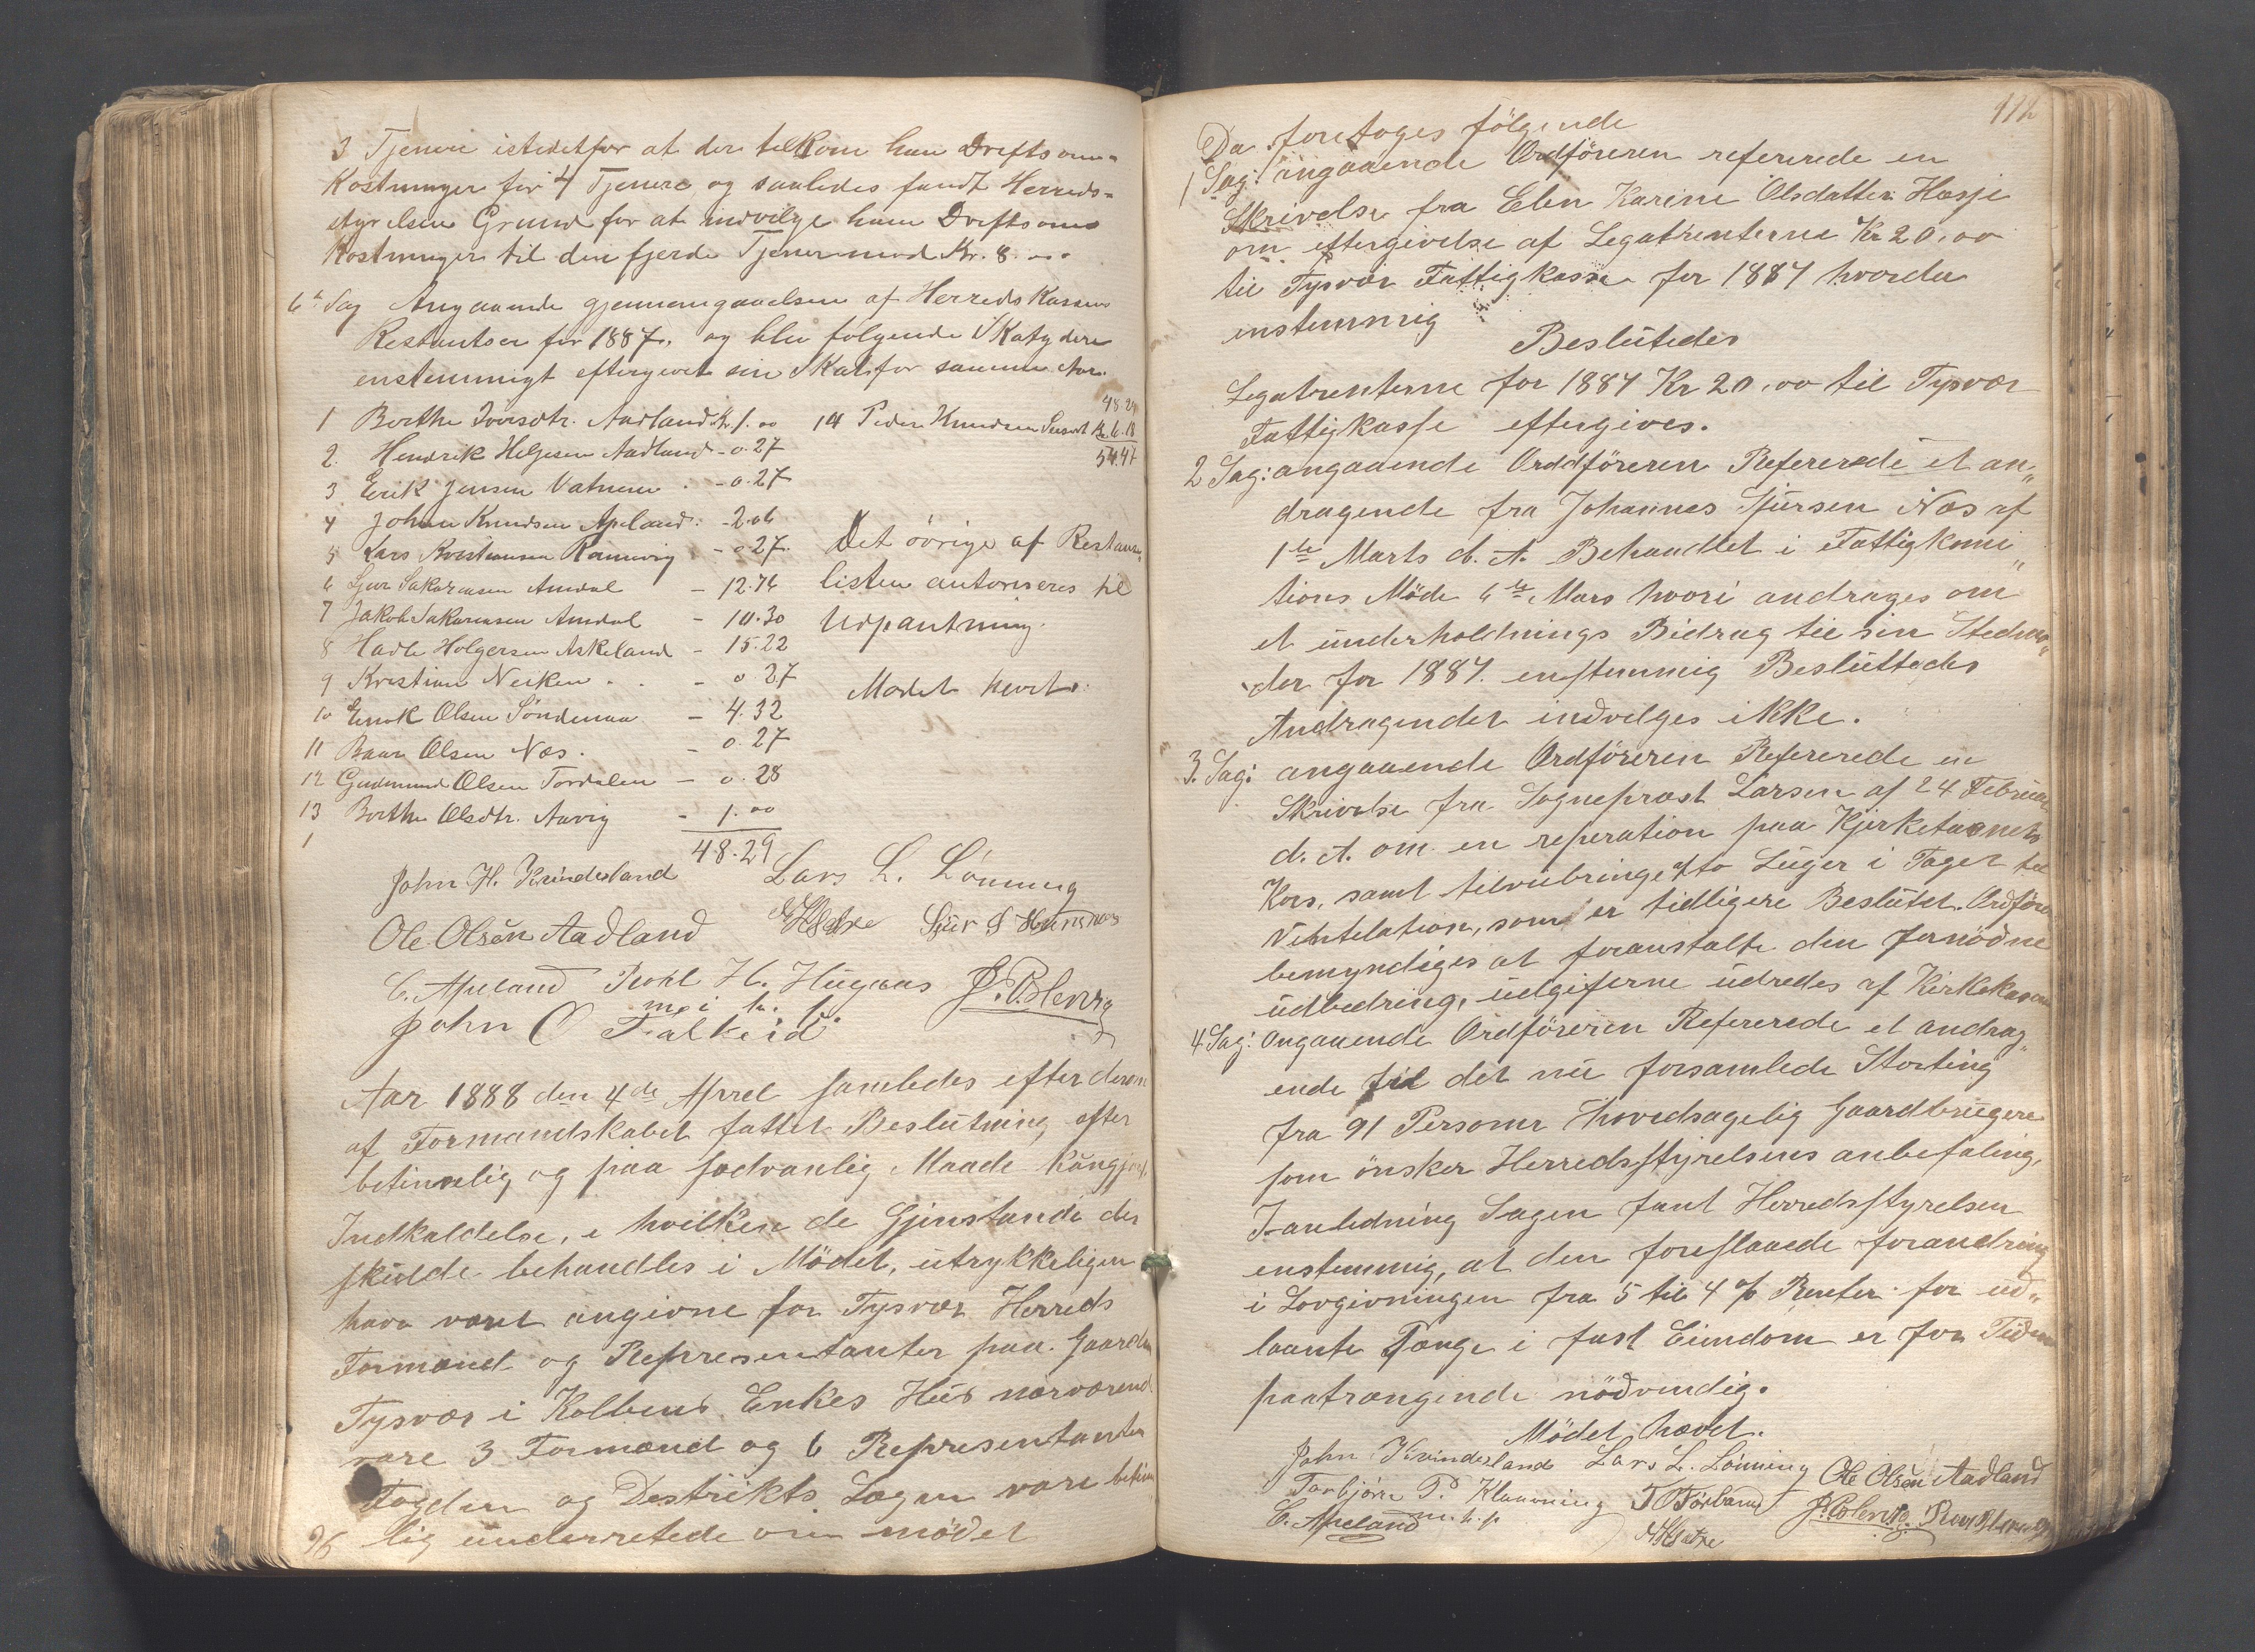 3 Tjenere istedetfor at der tilkom ham Driftsom-
kostninger for 4 Tjenere og saaledes fandt Herreds-
styrelsen Grund for at indvilge ham Driftsom-
kostninger til den fjerde Tjener med Kr. 8.00.
6te Sag Angaaende gjennemgaaelsen af Herredskassens
Restantser for 1887, og blev følgende Skatydere
enstemmigt eftergivet sin Skat for samme Aar.
1 Berthe Iversdtr. Aadland Kr. 1.00
2. Hendrik Helgesen Aadland - 0.27
3 Erik Jensen Vatnem - 0.27
4 Johan Knudsen Apeland - 2.06
5 Lars Kristiansen - 0.27.
6 Sjur Sakariasen Amdal - 12.76
7 Jakob Sakariasen Amdal - 10.30
8 Hadle Holgersen Askeland - 15.22
9 Kristian - 0 27
10 Enok Olsen Søndenaa - 4.32
11 Baar Olsen Næs. - 0.27
12 Gudmund Olsen Tordalen - 0.28
13 Berthe Olsdtr. Aavig - 1.00
1
48.29
48.29
14 Peder Knudsen Kr. 6.18
54.47
Det øvrige af Restanse
listen autoriseres til
Udpantning.
Mødet hævet.
John H. Kvindesland Lars L. Lønning
Ole Olsen Aadland Sjur S
C. Apeland H. Hugaas
m. i. h. p.
John O Falkeid
Aar 1888 den 4de April samledes efter derom
af Formandskabet fattet Beslutning efter
betimelig og paa sædvanlig Maade kungjort
Indkaldelse, i hvilken de Gjenstande der
skulde behandles i Mödet, utrykkeligen
have været angivne for Tysvær Herreds
Formænd og Repræsentanter paa Gaarden
Tysvær i Kolbens Enkes Hus nærværend
vare 3 Formænd og 6 Representanter
Fogden og Destrikts Lægen vare betime
lig underrettede om mödet
112
Da foretoges følgende
1 Sag: angaaende Ordföreren refererede en
Skrivelse fra Elen Karine Olsdatter Hæsje
om eftergivelse af Legatrenterne Kr 20,00
til Tysvær Fattigkasse for 1887 hvorda
enstemmig
Beslutedes
Legatrenterne for 1887 Kr 20,00 til Tysvær
Fattigkasse eftergives.
2 Sag: angaaende Orddföreren Refererede et an„
dragende fra Johannes Sjursen Næs af
1ste Marts d. A. Behandlet i Fattigkomi„
tions Möde 6te Mars hvori andrages om
et underholdnings Bidrag til sin Stedmo„
der for 1887. enstemmig Besluttedes
Andragendet indvelges ikke.
3. Sag: angaaende Ordföreren Refererede en
Skrivelse fra Sogneprest Larsen af 24 Februar
d. A. om en reperation paa Kjerketaarnets
Kors, samt tilveibringe to Luger i Taget til
Ventelation, som er tidligere Beslutet. Ordföre
bemyndiges at foranstalte den fornödne
udbedring, udgifterne udredes af Kirkekassen
4. Sag: Angaaende Ordföreren Refererede et andrag„
ende til det nu forsamlede Storting
fra 91 Personer hovedsagelig Gaardbrugere
som önsker Herredsstyrelsens anbefaling,
I anledning Sagen fant Herredsstyrelsen
enstemmig, at den foreslaaede forandring
i Lovgivningen fra 5 til 4 % Renter for ud„
laante Penge i fast Eiendom er for Tiden
paatrængende nödvendig.
Mödet hævet.
John Kvindesland Lars L. Lønning Ole Olsen Aadland
Torbjørn P. Klovning
C. Apeland m. h. p.